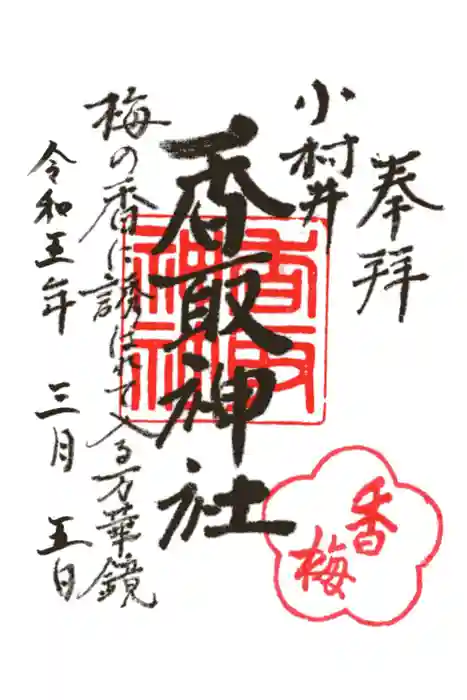 奉拝
小村井
香取神社
梅の香に誘はれて入る万華鏡
令和五年 三月 五日
香取神社
香梅